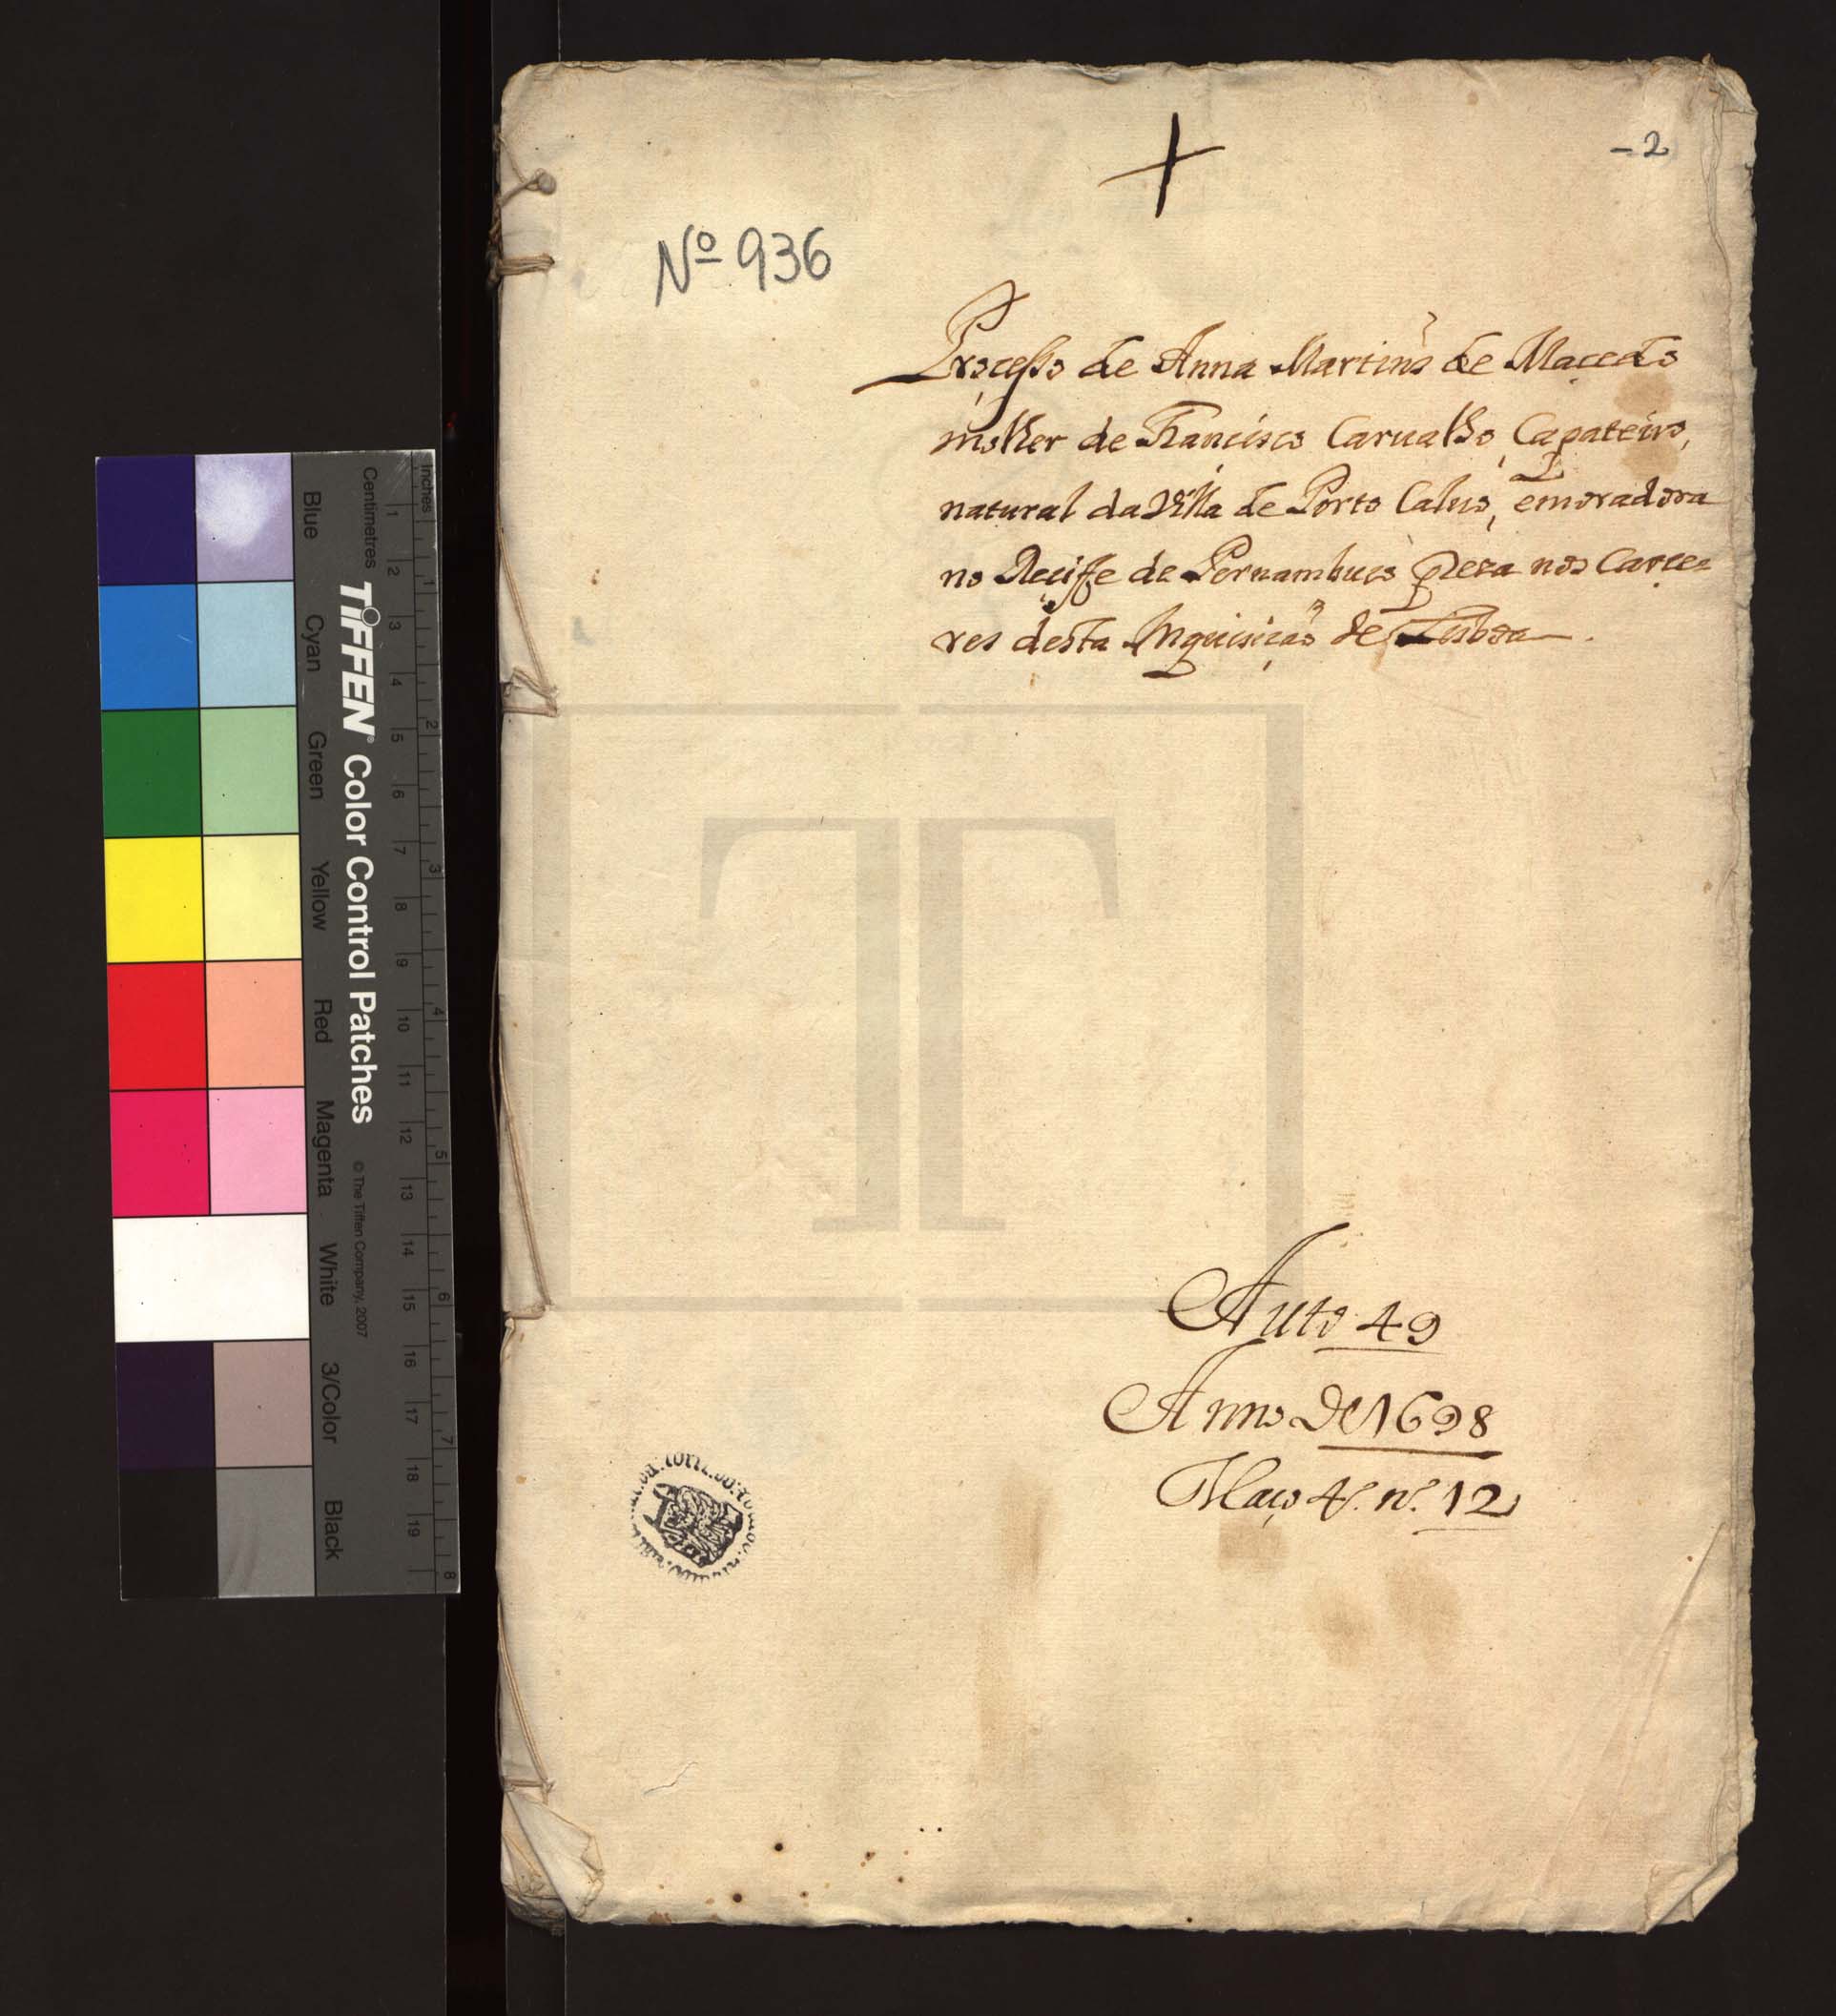 -2
Nº 936
Processo de Anna Martins de Macedo
molher de Francisco Carualho, Çapateiro,
natural da Villa de Porto Caluo, e moradora
no Reciffe de Pernambuco preza nos Carce=
res desta Inquisição de Lisboa.
Auto 49
Anno de 1698
Maço 4. nº. 12
TIFFEN® Color Control Patches
© The Tiffen Company, 2007
Inches
1 2 3 4 5 6 7 8
Centimetres
1 2 3 4 5 6 7 8 9 10 11 12 13 14 15 16 17 18 19
Blue
Cyan
Green
Yellow
Red
Magenta
White
3/Color
Black
TT